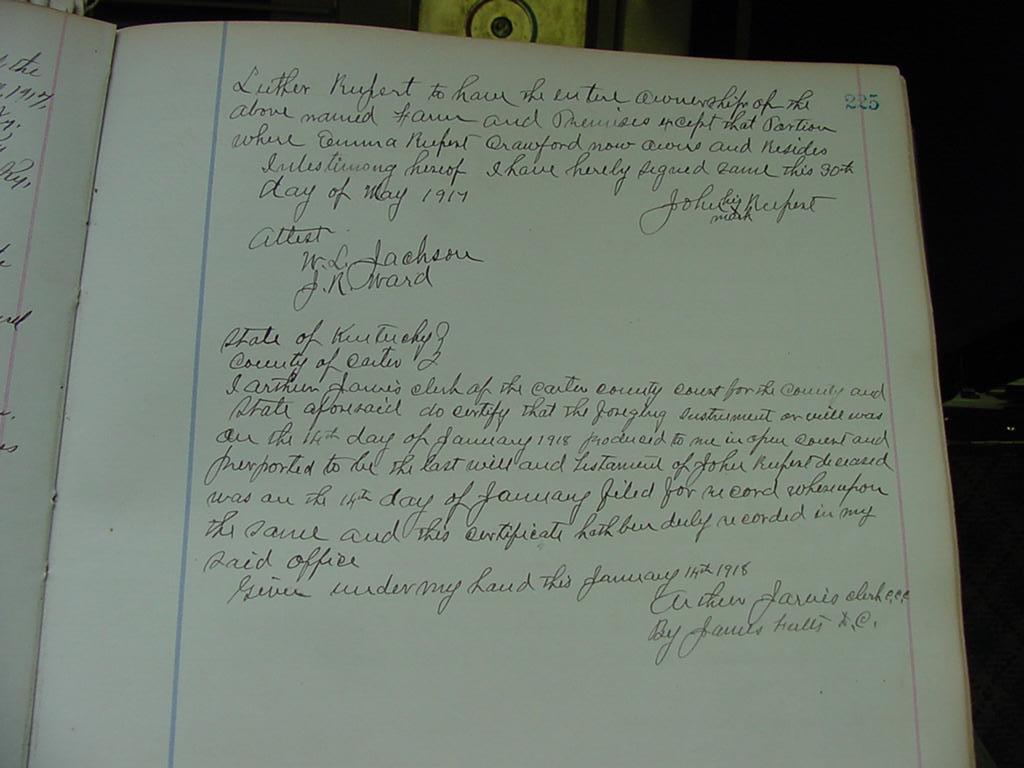 the
1917
225
Luther Rupert to have the entire ownership of the
above named Farm and Premises except that Portion
where Emma Rupert Crawford now owns and Resides
In testimony hereof I have hereby signed same this 30th
day of May 1917
John his X mark Rupert
Attest
W. L. Jackson
J. R Ward
State of Kentucky
County of Carter
I Arthur Jarvis clerk of the Carter County Court for the County and
State aforesaid do certify that the foreging instrument or will was
on the 14th day of January 1918 produced to me in open court and
purported to be the last will and testament of John Rupert deceased
was on the 14th day of January filed for record whereupon
the same and this certificate hath been duly recorded in my
said office
Given under my hand this January 14th 1918
Arthur Jarvis clerk C.C.C
By James D.C.